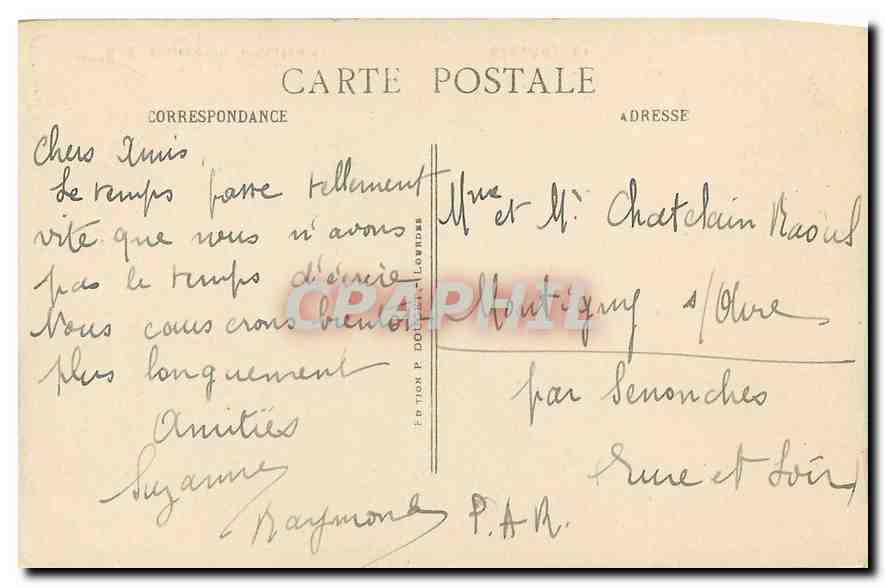 CARTE POSTALE
CORRESPONDANCE
Chers Amis,
Le temps passe tellement
vite que nous n'avons
pas le temps d'écrire
Nous causerons bientôt
plus longuement
Amitiés
Suzanne
Raymond
EDITION P. DOUCET, LOURDES
ADRESSE
Mme et Mr Chatelain Raoul
Montigny s/Avre
par Senonches
Eure et Loir
P.A.R.
CPAPHIL